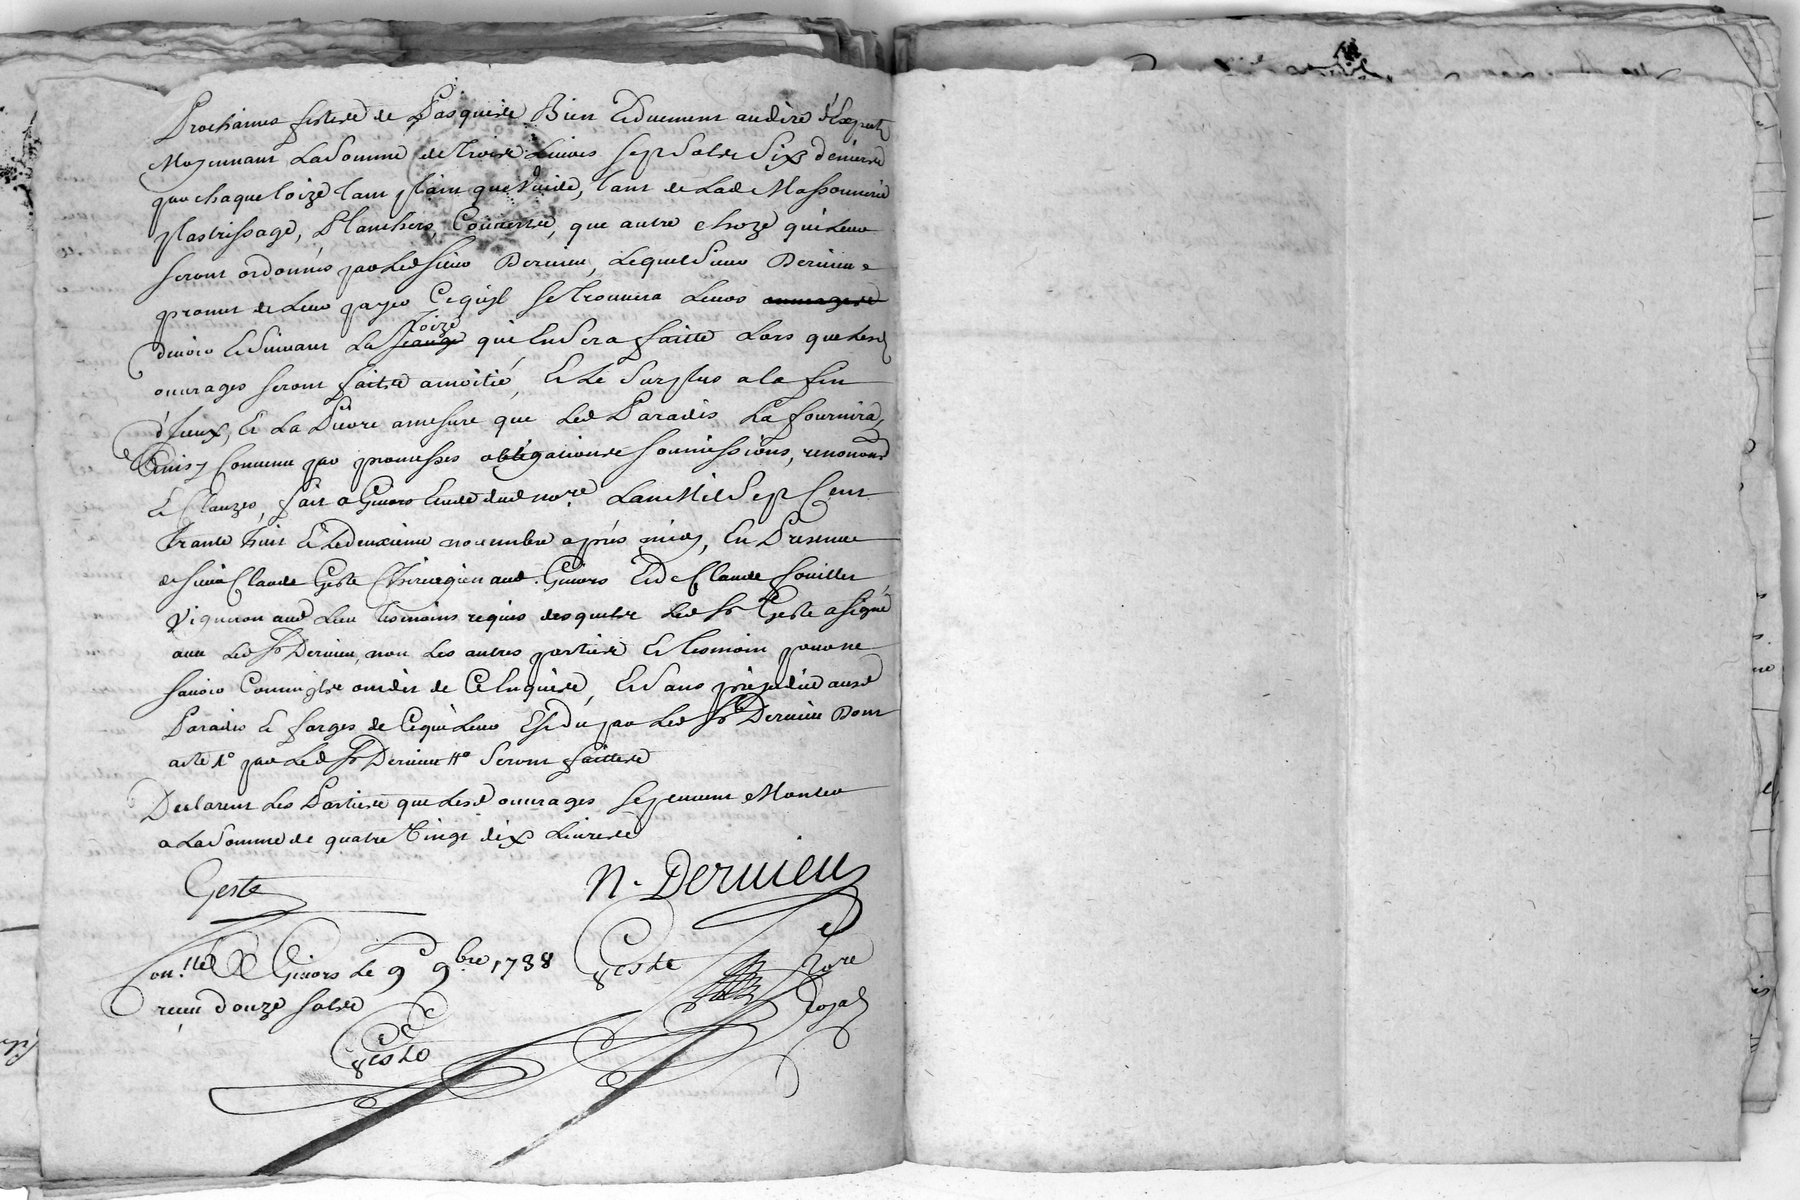 Prochaines festes de Pasques Bien Et duement au dire d'Experts
Moyennant La Somme de Trois Livres Sept Sols Six deniers
par chaque toize tant plain que Vuide, tant de Lad Massonnerie
plastrissage, Planchers, Couverts, que autre choze qui Leur
seront ordonnés par Led sieur Dervieu, Lequel Sieur Dervieu
promet de Leur payer Ce qu'jl se trouvera Leurs
devoir Et Suivant La toize qui En Sera faitte Lors que Lesd
ouvrages seront faits a moitié, Et Le Surplus a la fin
d'jceux, Et La Pierre a mesure que Led Paradis La fournira,
Ainsy Convenu par promesses obligations soumissions, renonond
Et Clauzes, fait a Givors Etude dud nore Lan Mil Sept Cent
Trante huit Et Le deuxieme novembre après midy, En Presence
de sieur Claude Geste Chirurgien aud. Givors Et de Claude fouillet
Vigneron aud Lieu tesmoins requis desquels Led Sr Geste a signé
avec Led Sr Dervieu, non Les autres parties Et tesmoin pour ne
savoir Comme ils ont dit de Ce Enquis, Et Sans prejudice ausd
Paradis Et forges de Ce qui Leur Est Du par Led Sr Dervieu Dont
acte 1° par Led Sr Dervieu 11° Seront faittes
Declarent Les Parties que Lesd ouvrages se peuvent Monter
a La Somme de quatre Vingt dix Livres
Geste
N. Dervieu
Con.llé A Givors Le 9e 9bre 1738
Geste
Nore
Royal
recu douze sols
Geste